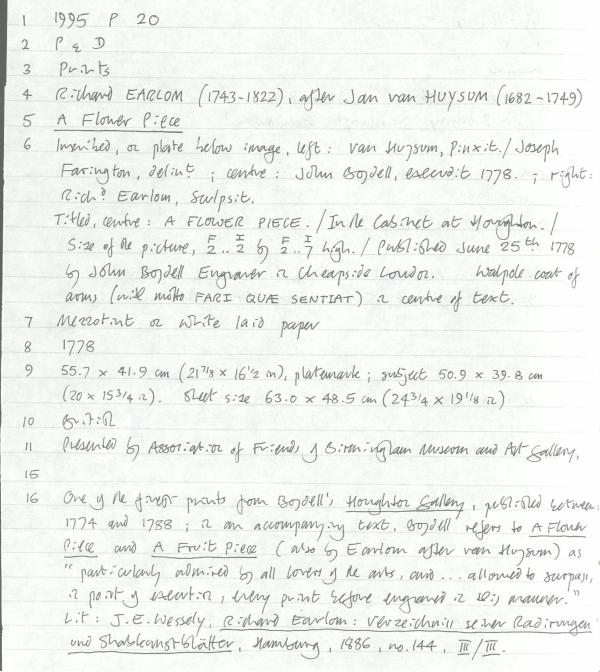 1 1995 P 20
2 P & D
3 Prints
4 Richard EARLOM (1743-1822), after Jan van HUYSUM (1682-1749)
5 A Flower Piece
6 Inscribed, on plate below image, left: van Huysum, Pinxit./ Joseph
Farington, delint ; centre: John Boydell, excudit 1778. ; right:
Richd Earlom, sculpsit.
Titled, centre: A FLOWER PIECE. / In the Cabinet at Houghton. /
Size of the picture, F 2.. I 2 by F 2.. I 7 high. / Published June 25th 1778
by John Boydell Engraver in Cheapside London. Walpole coat of
arms (with motto FARI QUÆ SENTIAT) in centre of text.
7 Mezzotint on white laid paper
8 1778
9 55.7 x 41.9 cm (21 7/8 x 16 1/2 in), platemark ; subject 50.9 x 39.8 cm
(20 x 15 3/4 in). Sheet size 63.0 x 48.5 cm (24 3/4 x 19 1/8 in)
10 British
11 Presented by Association of Friends of Birmingham Museum and Art Gallery,
15
16 One of the finest prints from Boydell's Houghton Gallery, published between
1774 and 1788 ; in an accompanying text, Boydell refers to A Flower
Piece and A Fruit Piece (also by Earlom after van Huysum) as
"particularly admired by all lovers of the arts, and ... allowed to surpass,
in point of execution, every print before engraved in this manner."
Lit: J.E. Wessely, Richard Earlom: Verzeichniss seiner Radirungen
und Shabkunstblätter, Hamburg, 1886, no. 144, III/III.